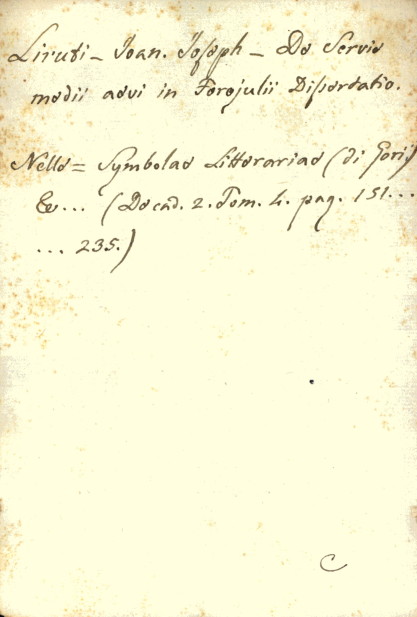 Liruti - Joan. Joseph - De Servis
medii aevi in Forojulii Dissertatio.
Nelle = Symbolae Litterariae (di Gori)
&... (Decad. 2. Tom. 4. pag. 151...
... 235.)
C